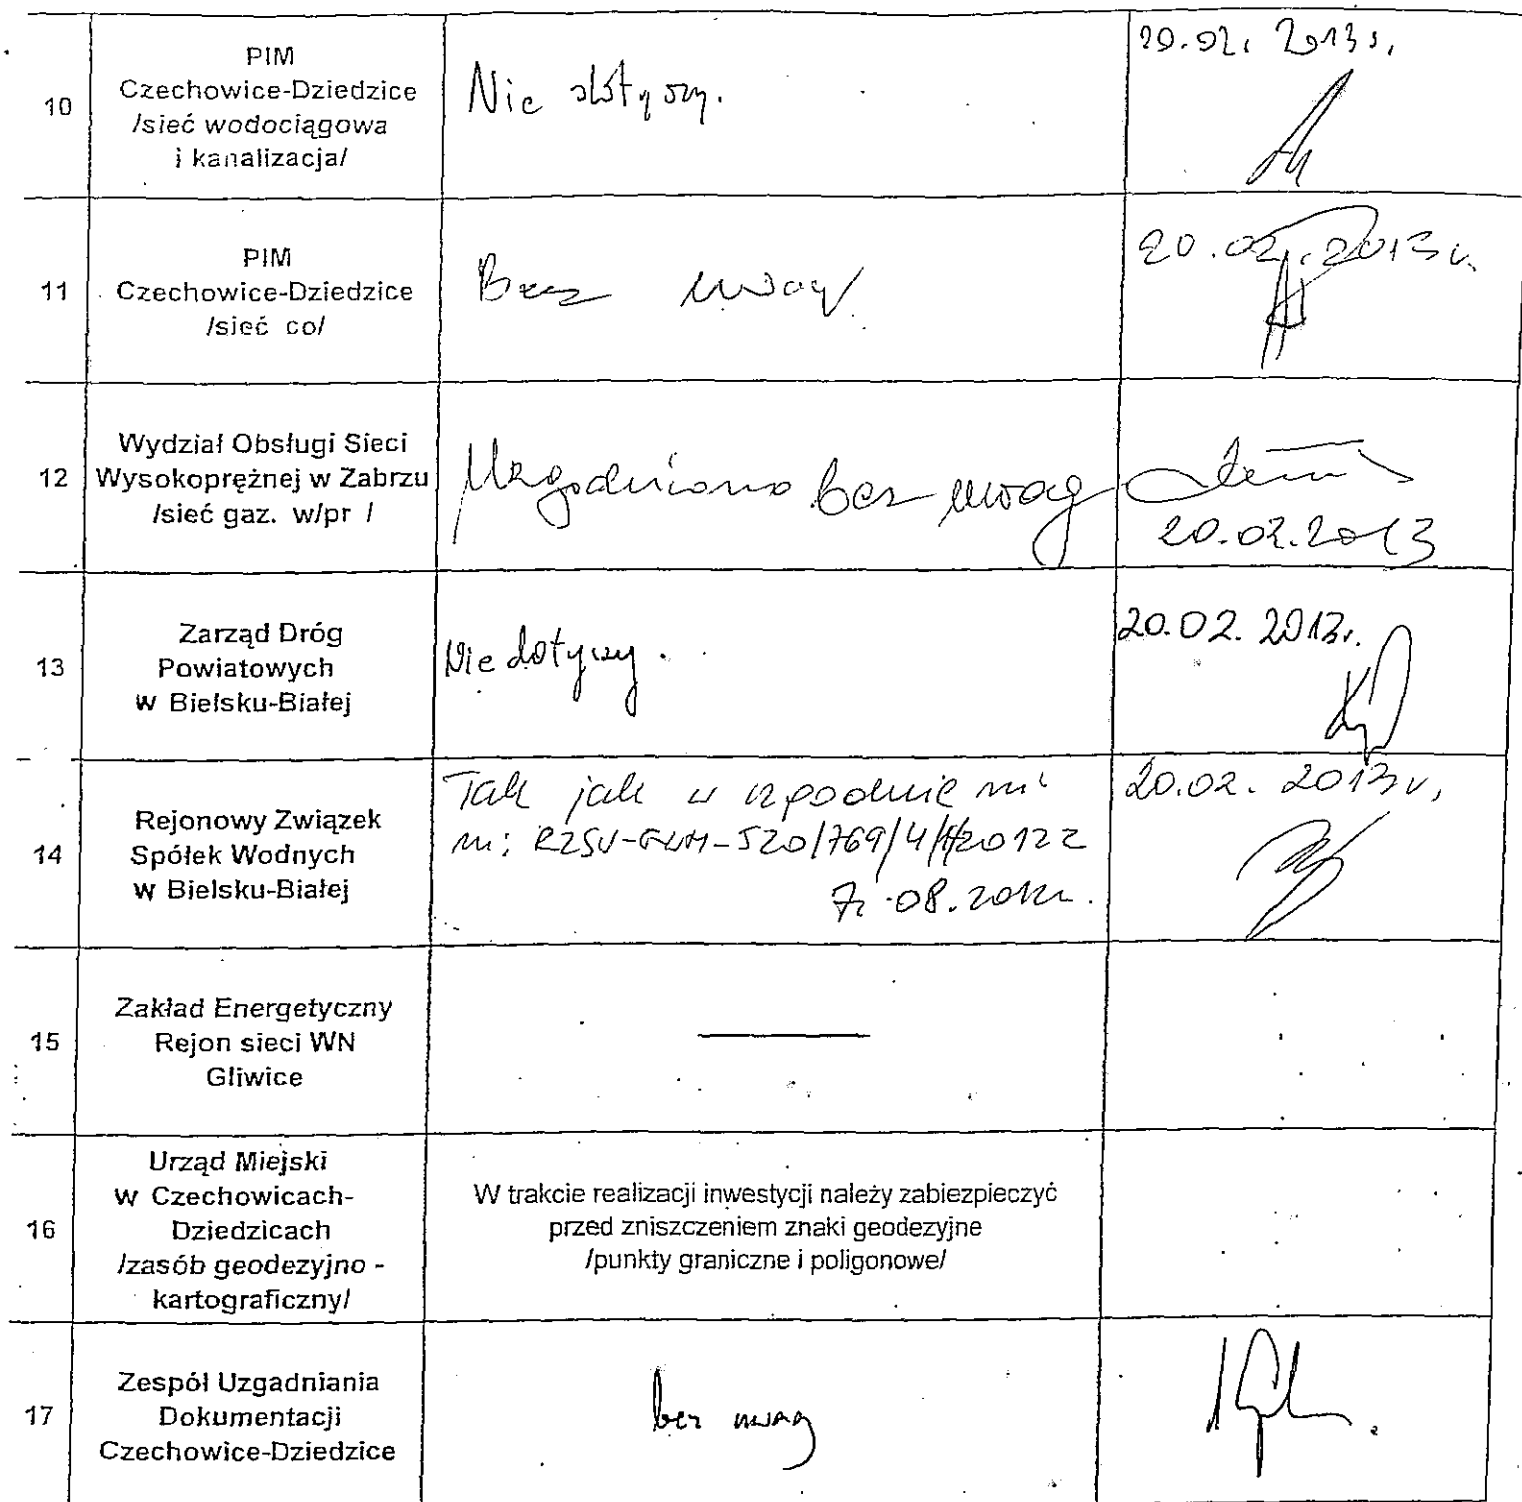 10
PIM
Czechowice-Dziedzice
/sieć wodociągowa
i kanalizacja/
Nie dotyczy.
20.02. 2013 r.
11
PIM
Czechowice-Dziedzice
/sieć co/
Bez uwag
20.02.2013 r.
12
Wydział Obsługi Sieci
Wysokoprężnej w Zabrzu
/sieć gaz. w/pr /
Uzgodniono bez uwag
20.02.2013
13
Zarząd Dróg
Powiatowych
w Bielsku-Białej
Nie dotyczy.
20.02. 2013r.
14
Rejonowy Związek
Spółek Wodnych
w Bielsku-Białej
Tak jak w
20.02. 2013 r.
15
Zakład Energetyczny
Rejon sieci WN
Gliwice
16
Urząd Miejski
w Czechowicach-
Dziedzicach
/zasób geodezyjno -
kartograficzny/
W trakcie realizacji inwestycji należy zabiezpieczyć
przed zniszczeniem znaki geodezyjne
/punkty graniczne i poligonowe/
17
Zespół Uzgadniania
Dokumentacji
Czechowice-Dziedzice
bez uwag